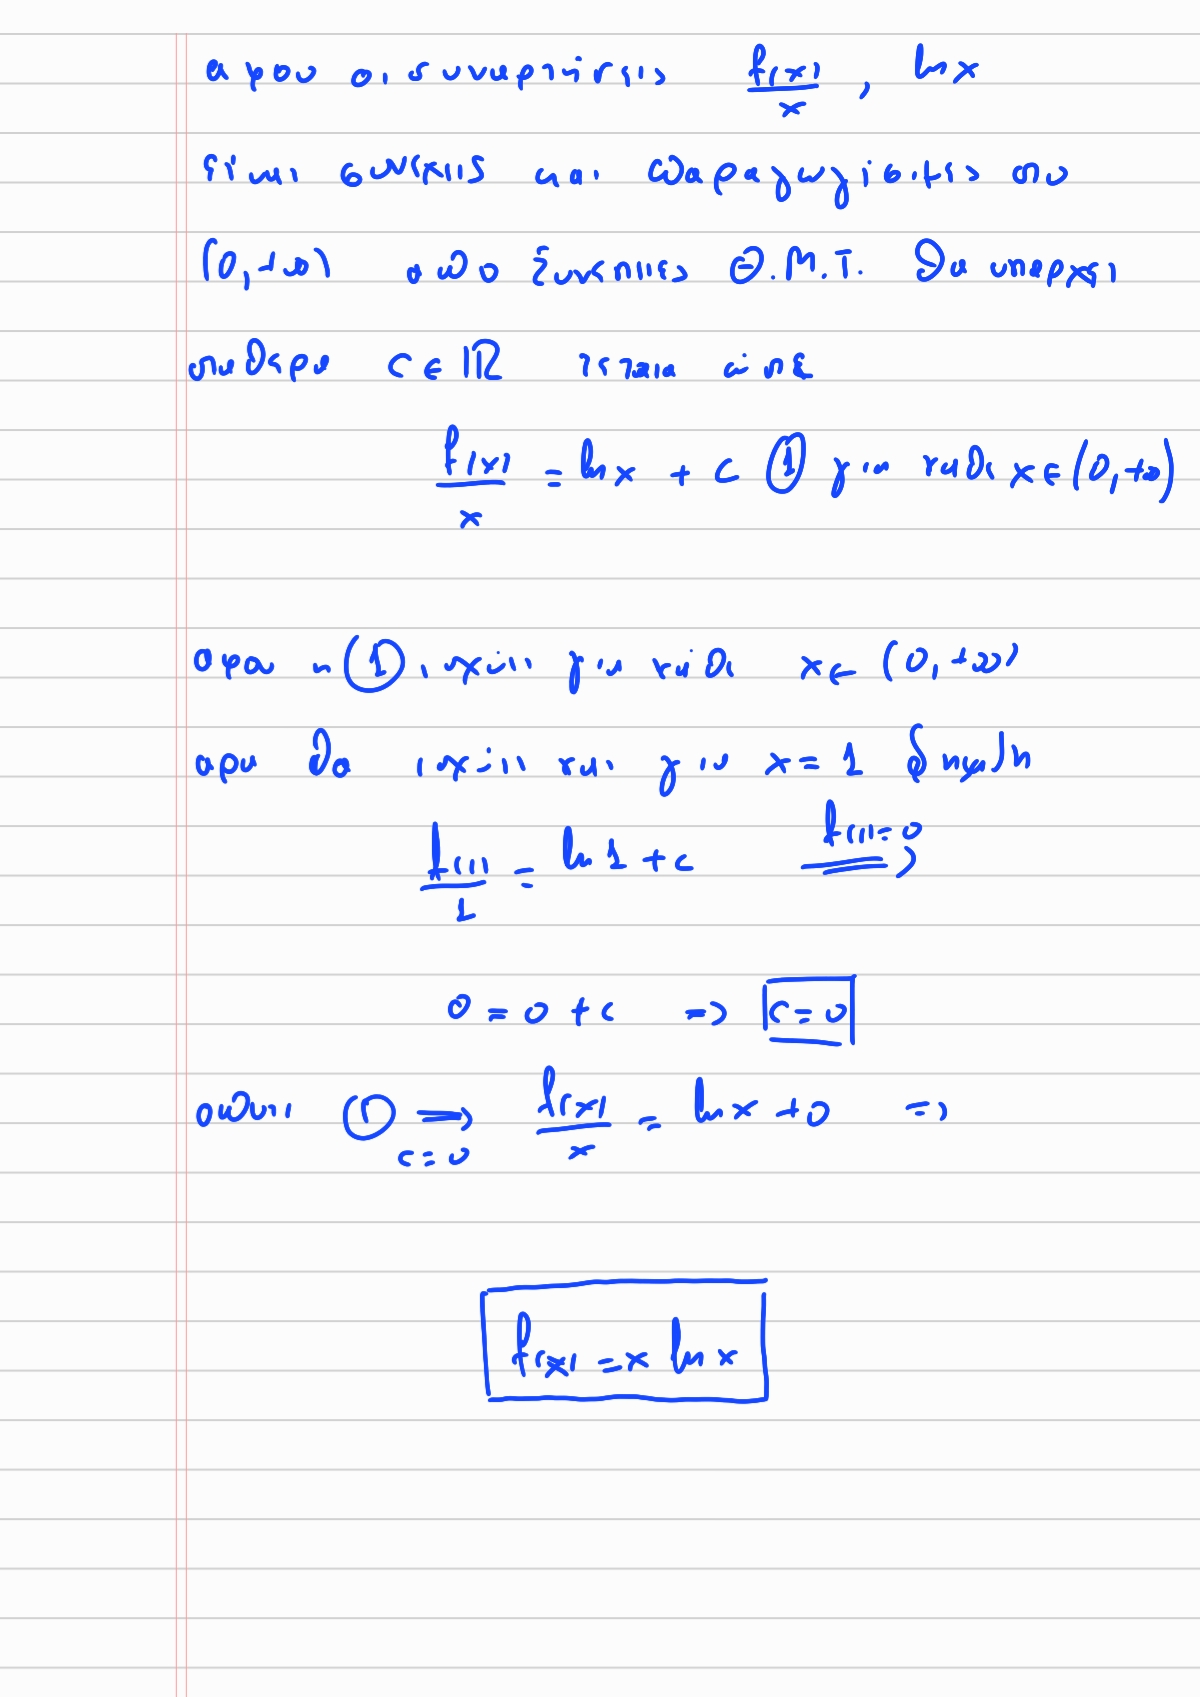 αφου οι συναρτήσεις f(x)/x , ln x
είναι συνεχής και παραγωγίσιμες στο
(0,+∞) από συνέπειες Θ.Μ.Τ. θα υπάρχει
σταθερα c ∈ ℝ τέτοια ώστε
f(x)/x = ln x + c ① για κάθε x ∈ (0,+∞)
αφου η ① ισχύει για κάθε x ∈ (0,+∞)
αρα θα ισχύει και για x = 1 δηλαδη
f(1)/1 = ln 1 + c f(1)=0 ⟹
0 = 0 + c => c = 0
οποτε ① ⟹ c=0 f(x)/x = ln x + 0 =>
f(x) = x ln x